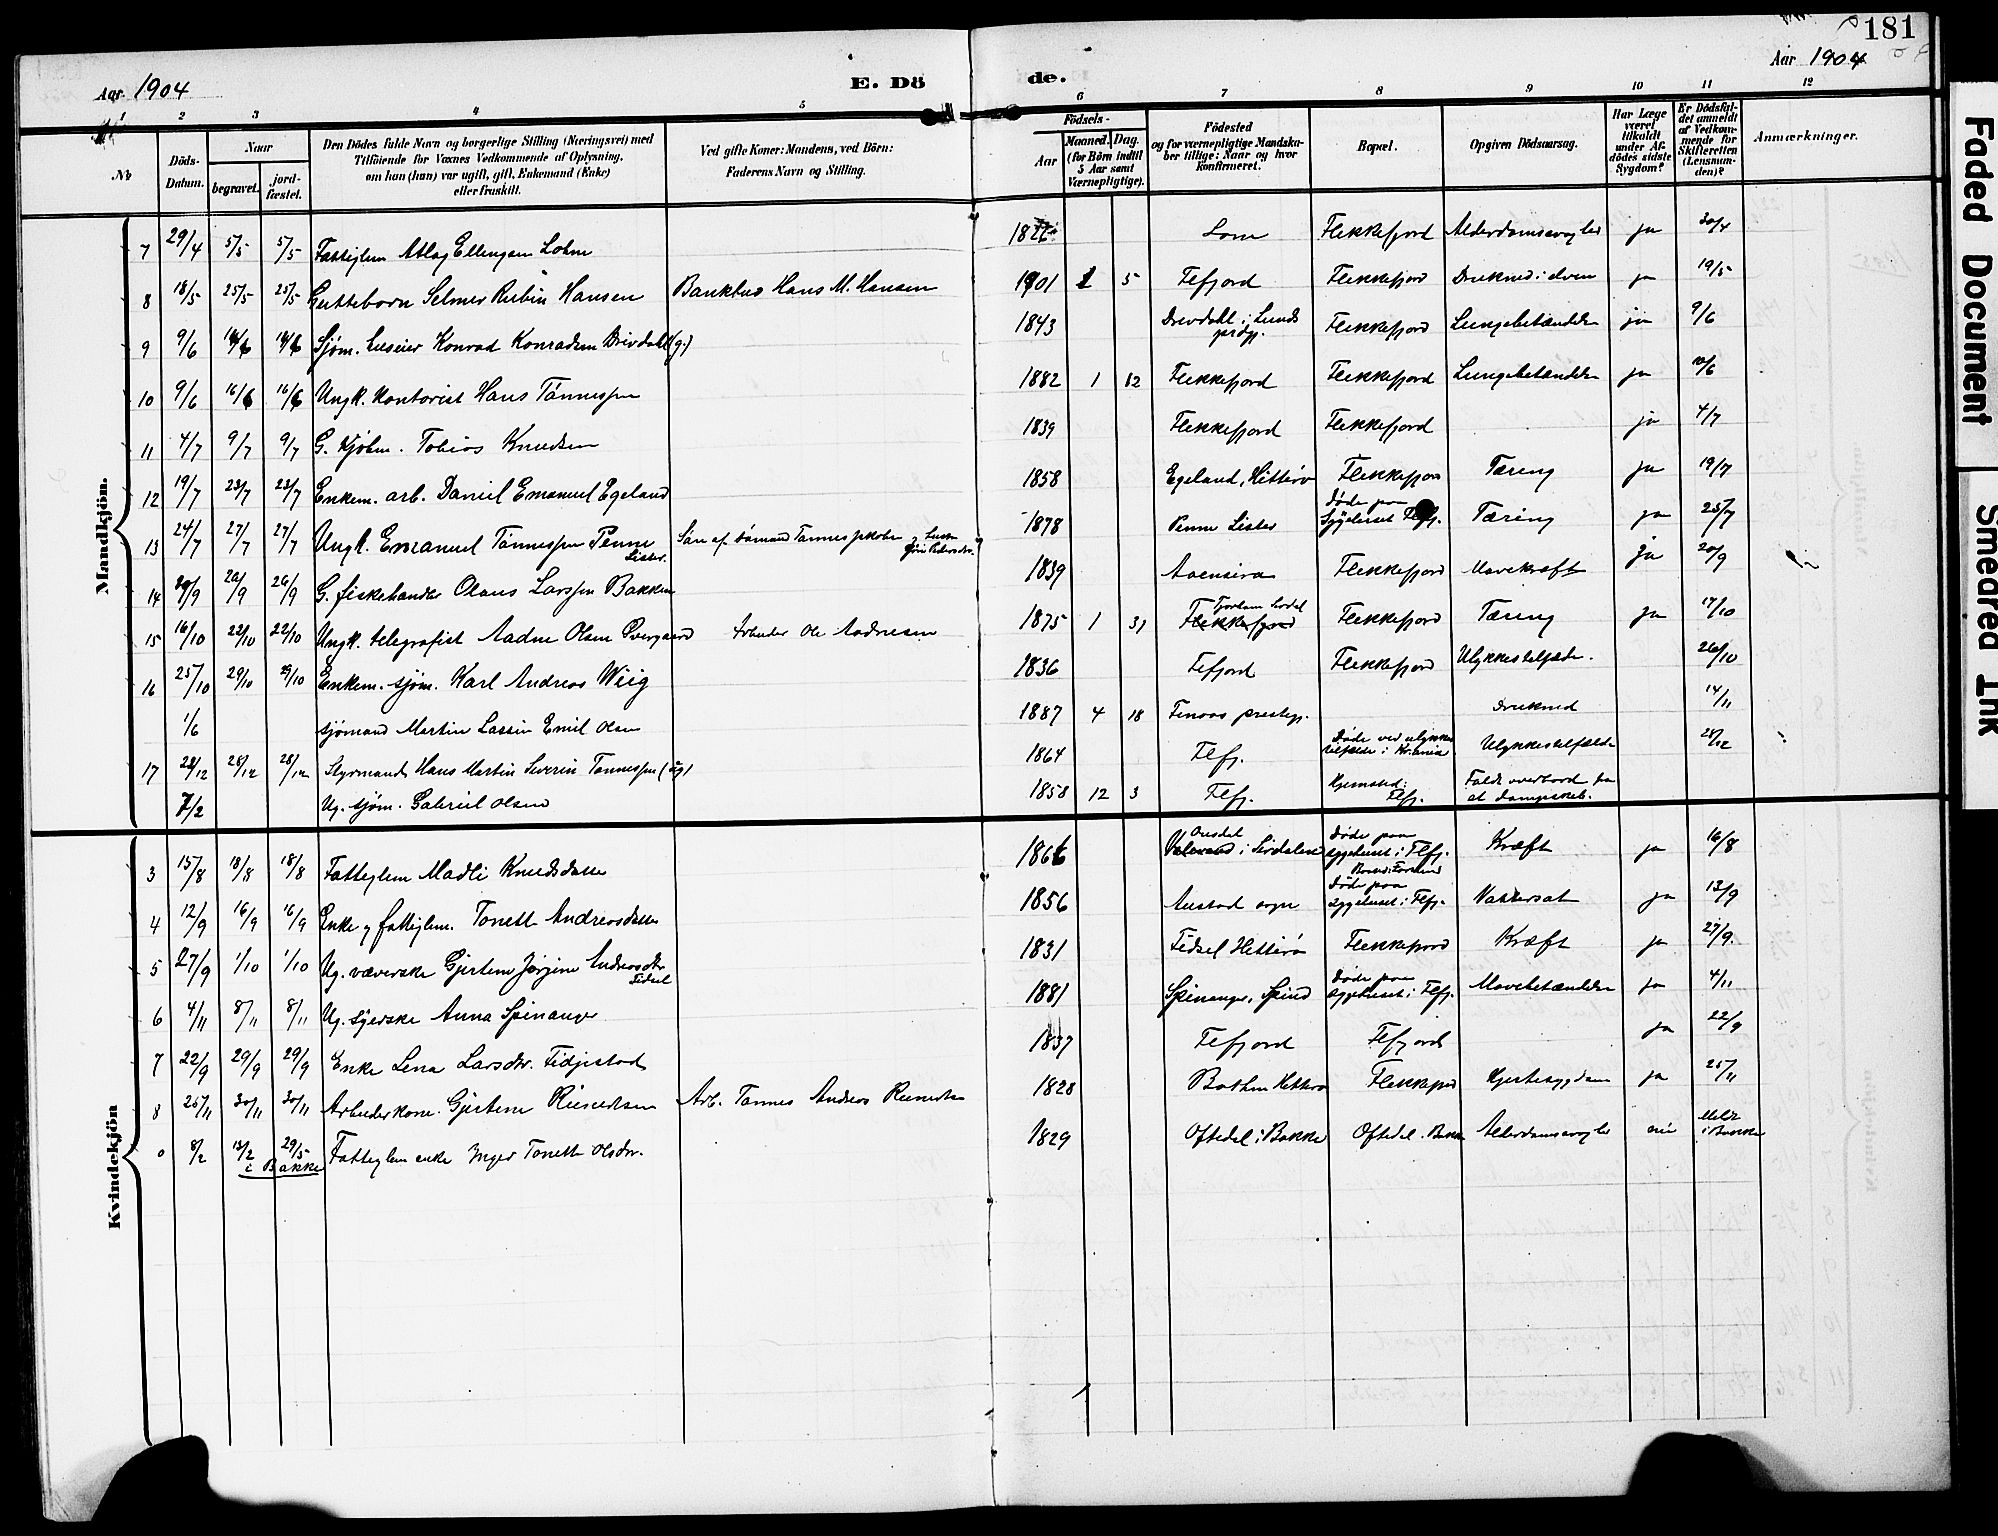 181
Aar 1904
E. Dö
de.
Aar 1904
1 2 3 4 5 6 7 8 9 10 11 12
No
Döds-Datum.
Naar
begravet.
jord-fæstet.
Den Dödes fulde Navn og borgerlige Stilling (Næringsvei) med
Tilföiende for Voxnes Vedkommende af Oplysning,
om han (hun) var ugift, gift, Enkemand (Enke)
eller fraskilt.
Ved gifte Koner: Mandens, ved Börn:
Faderens Navn og Stilling.
Födsels-
Aar
Maaned. Dag.
(for Börn indtil
5 Aar samt
Værnepligtige).
Födested
og for værnepligtige Mandska-
ber tillige: Naar og hvor
Konfirmeret.
Bopæl.
Opgiven Dödsaarsag.
Har Læge
været
tilkaldt
under Af-
dödes sidste
Sygdom?
Er Dödsfal-
det anmeldt
af Vedkom-
mende for
Skifteretten
(Lensman-
den)?
Anmærkninger.
Mandkjön.
7 29/4 5/5 5/5 Fattiglem Atlag Ellengsen 18 Flekkefjord Alderdomssvaghed ja 30/4
8 18/5 25/5 25/5 Gutteborn Selmer Rubin Hansen Bankbud Hans M. Hansen 1901 5 Flfjord Flekkefjord Druknet i elven ja 19/5
9 9/6 Sjøm. Konrad Konradsen (g.) 1843 Drevdahl i Lunds prstgj. Flekkefjord Lungebetændelse ja 9/6
10 9/6 16/6 16/6 Ungk. Kontorist Hans Tønnessen 1882 1 12 Flekkefjord Flekkefjord Lungebetændelse ja 10/6
11 4/7 9/7 9/7 G. Kjøbm. Tobias Knudsen 1839 Flekkefjord Flekkefjord ja 4/7
12 19/7 23/7 23/7 Enkem. arb. Daniel Emanuel Egeland 1858 Egeland, Hitterø Flekkefjord Tæring ja 19/7
13 24/7 27/7 27/7 Ungk. Emanuel Tønnessen Penne Lister. Søn af sømand Tønnes Jakobsen 1878 Penne Lister Døde paa Sygehuset Flfj. Tæring ja 25/7
14 26/9 G. fiskehandler Olaus Larssen Bakken 1839 Aaensira Flekkefjord Mavekræft ja 20/9
15 16/10 22/10 22/10 Ungk. telegrafist Aadne Olsen Øvergaard Arbeider Ole Aadnesen 1875 1 31 Tjorhom Sirdal Flekkefjord Flekkefjord Tæring ja 17/10
16 25/10 29/10 29/10 Enkem. sjøm. Karl Andreas Wiig 1836 Flfjord Flekkefjord Ulykkestilfælde. 26/10
1/6 sjømand Martin Lassin Emil Olsen 1887 4 18 prestgj. druknet 14/11
17 28/12 28/12 Styrmand Hans Martin Severin Tønnessen (ug) 1864 Flfj. Døde ved ulykkestilfælde i Kr.ania Ulykkestilfælde
7/2 Ug. sjøm. Gabriel Olsen 1858 12 3 Flfj. Hjemsted: Flfj. Faldt overbord fra et dampskib.
Kvindekjön
3 15/8 18/8 18/8 Fattiglem Madli Knudsdatter 1866 Ousdal i Sirdalen Døde paa sygehuset i Flfj. Kræft ja 16/8
4 12/9 16/9 16/9 Enke og fattiglem. Tonette Andreasdatter 1856 Austad sogn Døde paa sygehuset i Flfj. Vattersot ja 13/9
5 27/9 1/10 1/10 Ug. væverske Gjertine Jørgine Andreasdtr Fidsel 1831 Fidsel Hitterø Flekkefjord Kræft ja 27/9
6 4/11 8/11 8/11 Ug. syerske Anna Spinanger 1881 Spinanger, Spind Døde paa sygehuset i Flfj. Mavebetændelse ja 4/11
7 22/9 29/9 29/9 Enke Lena Larsdtr. Fidjestad 1837 Flfjord Flfjord ja 22/9
8 25/11 30/11 30/11 Arbeiderkone. Gjertine Reinertsen Arb. Tønnes Andreas Reinertsen 1828 Hitterø Flekkefjord Hjertesygdom ja 25/11
0 8/2 13/2 29/5 i Bakke Fattiglem enke Inger Tonette Olsdtr. 1829 Oftedal i Bakke Oftedal. Bakke Alderdomssvaghed nei Meldt i Bakke
Faded Document
Smeared Ink